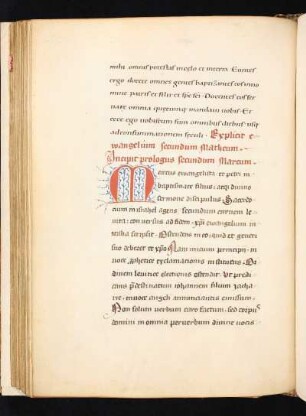 michi omnis potestas in celo et in terra Euntes
ergo docete omnes gentes baptizantes eos in no
mine patris et filii et sp̃s sc̃i Docentes eos ser
uare omnia quecumque mandaui uobis Et
ecce ego uobiscum sum omnibus diebus usq3
ad consummationem seculi Explicit e
wangelium secundum Matheum
Incipit prologus secundum Marcum
Marcus ewangelista et petri in
baptismate filius atq3 diuino
sermone discipulus Sacerdo
cium in israhel agens secundum carnem le
uita conuersus ad fidem xp̃i ewangelium in
ytalia scripsit Ostendens in eo quid et generi
suo deberet et xp̃o Nam inicium principii in
uoce prophetice exclamationis instituens Or
dinem leuitice electionis ostendit Ut predi
cans predestinatum iohannem filium zacha
rie in uoce angeli annunciantis emissum
Non solum uerbum caro factum sed corpus
domini in omnia per uerbum diuine uocis